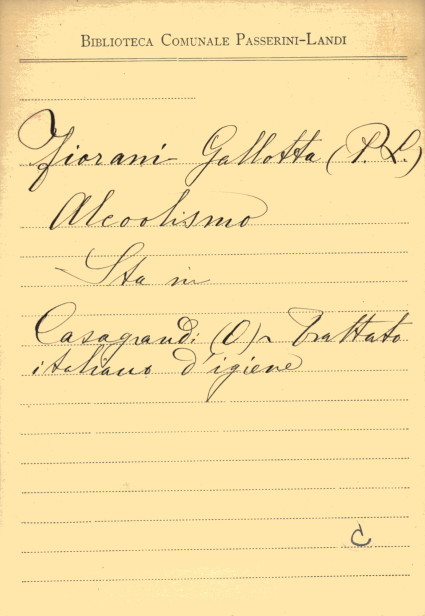 BIBLIOTECA COMUNALE PASSERINI-LANDI
Fiorani Gallotta (P. L.)
Alcoolismo
Sta in
Casagrandi (O) - Trattato
italiano d'igiene
C